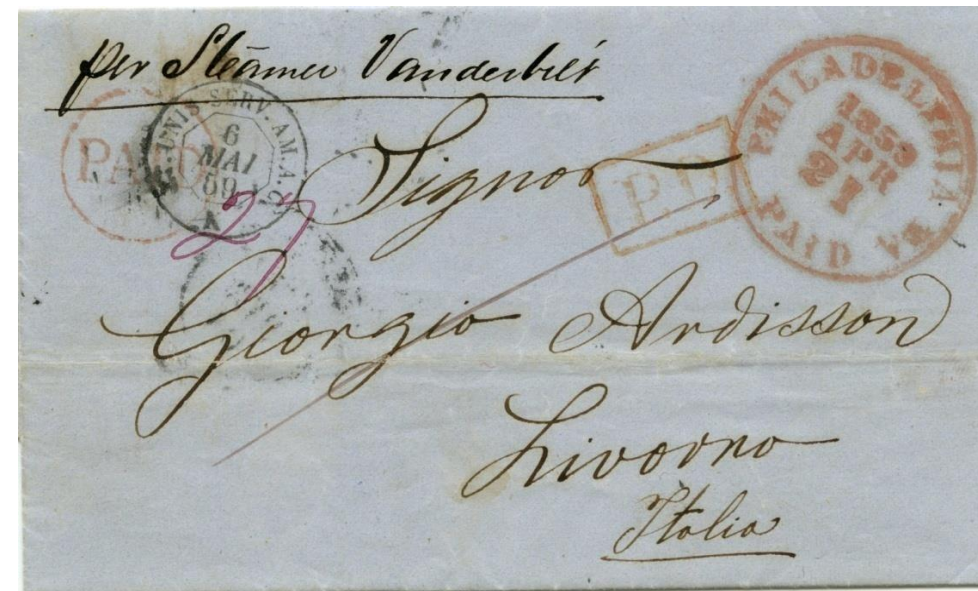 per Steamer Vanderbilt
PAID
UNIS SERV. AM. A. C.
6
MAI
59
A
27
PHILADELPHIA PA
1859
APR
21
PAID
Signor
Giorgio Ardisson
Livorno
Italia